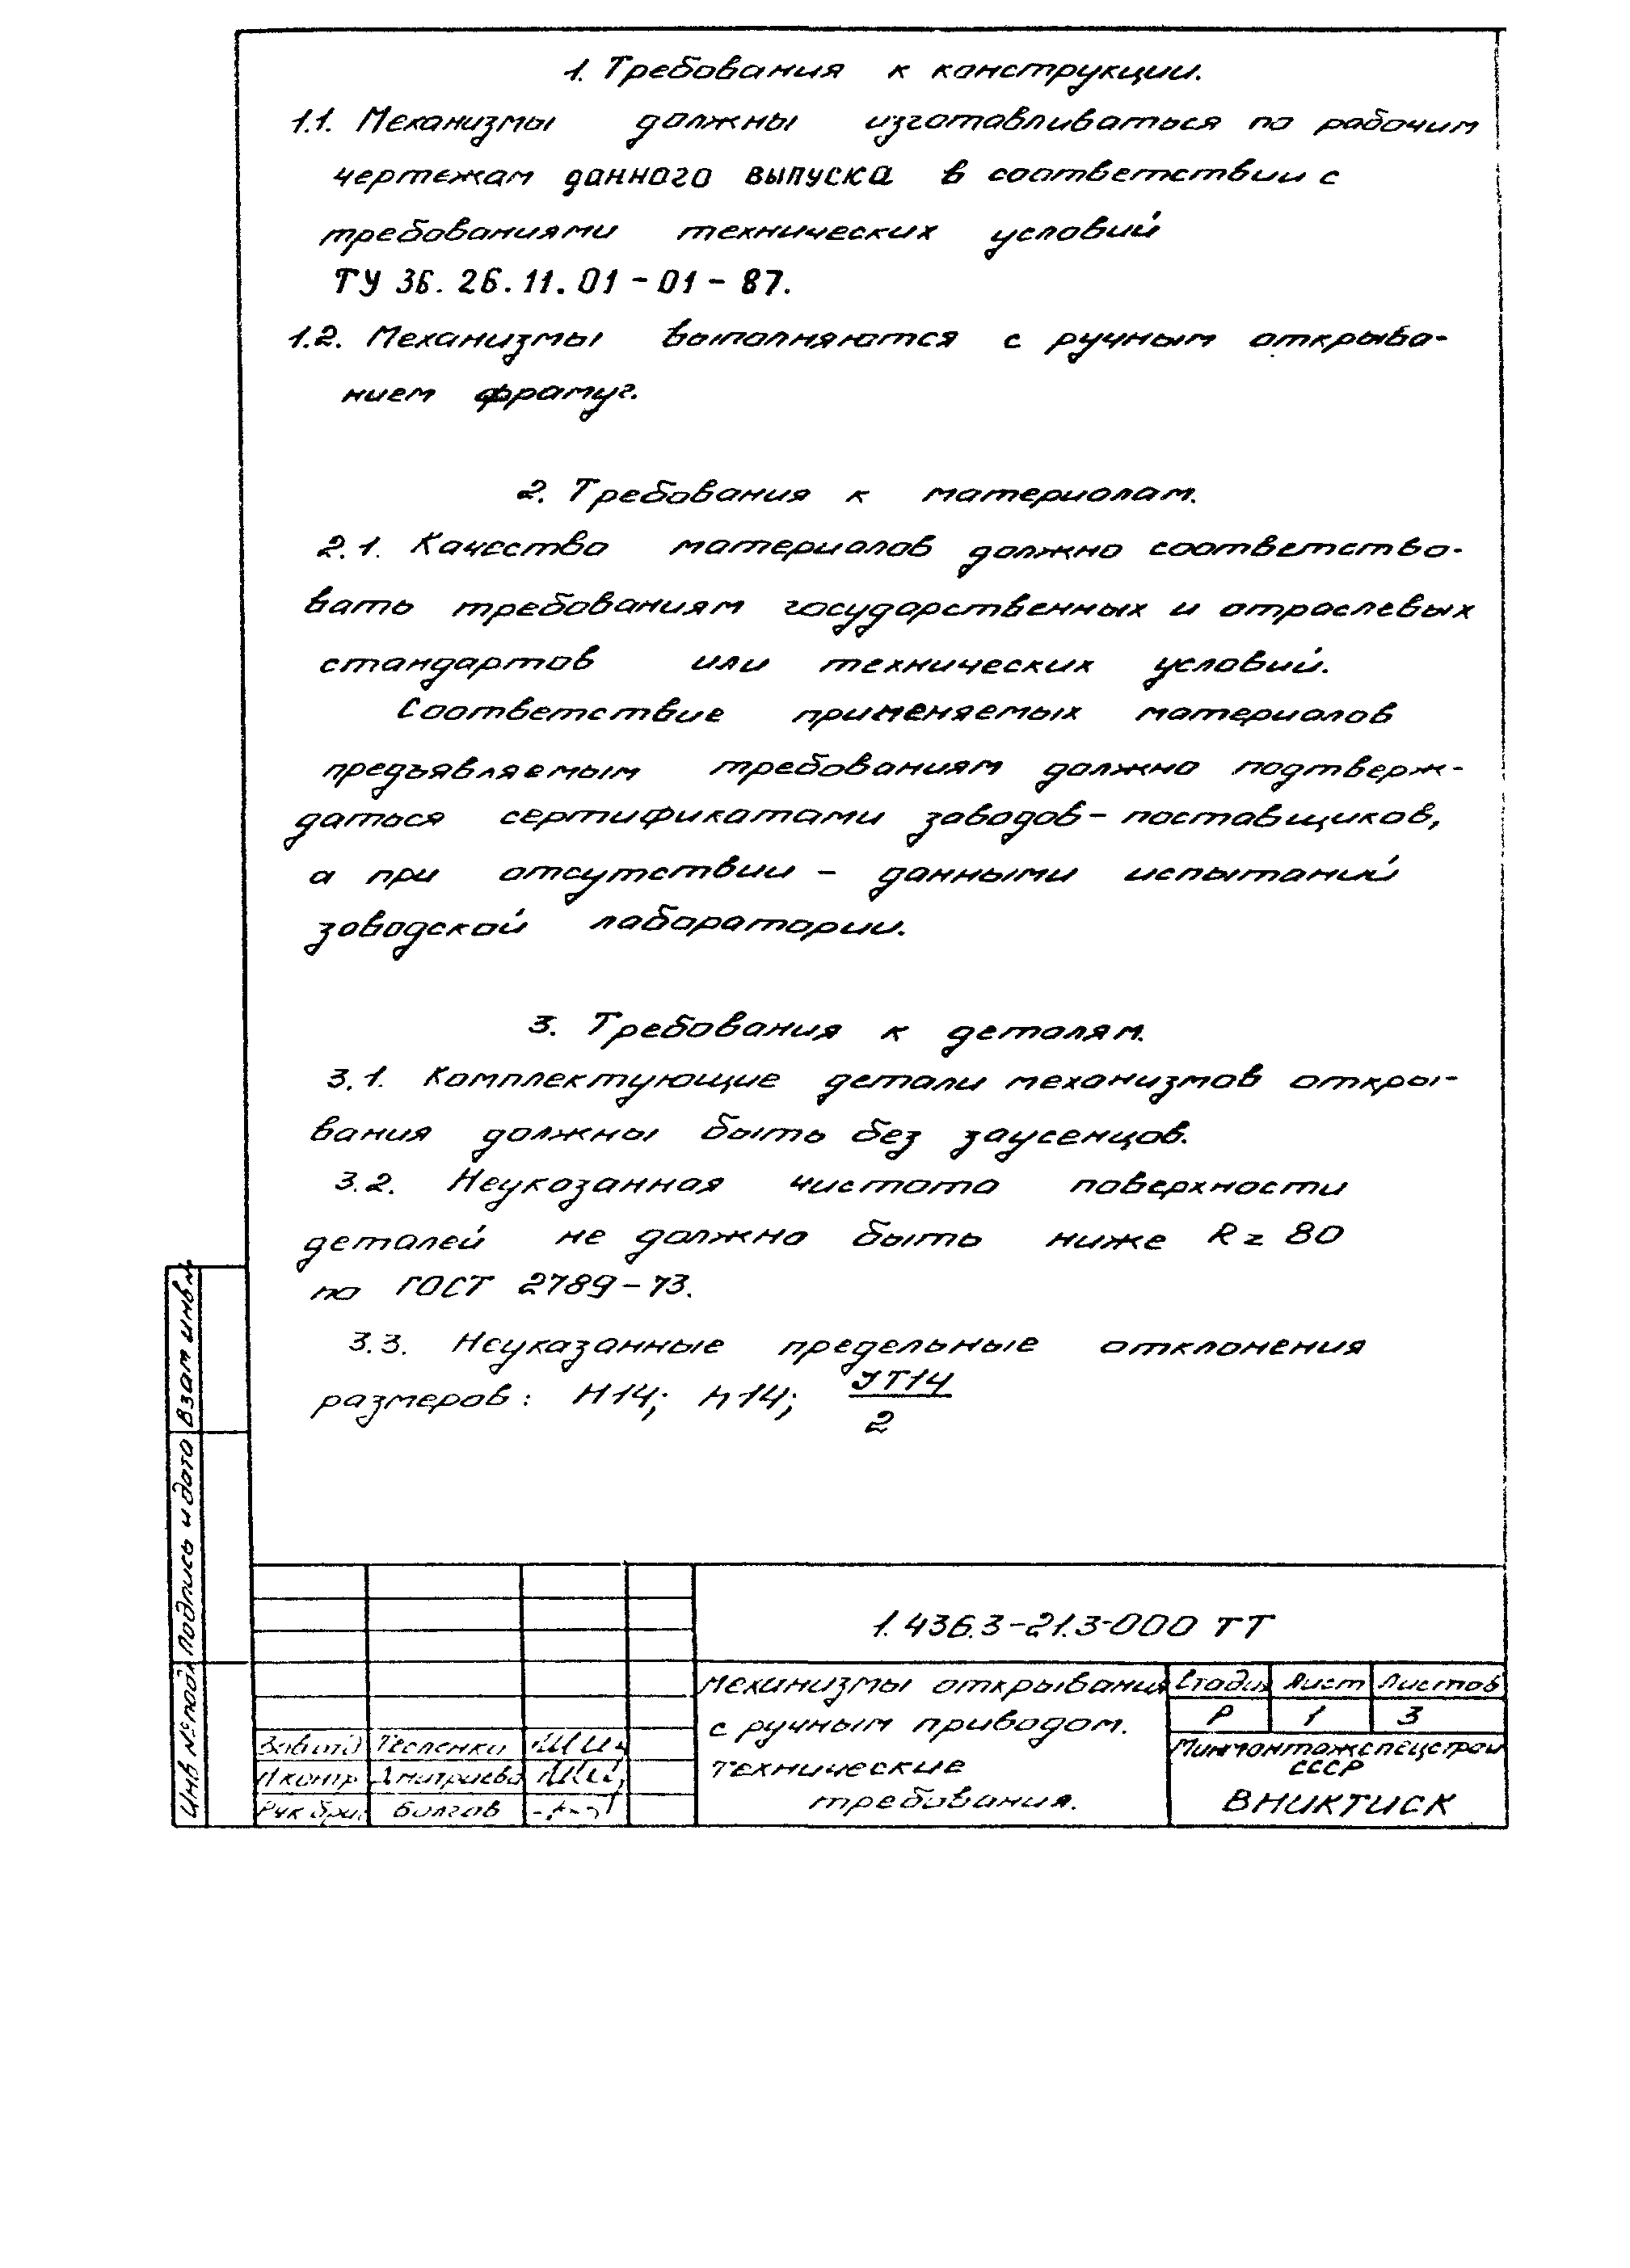 1. Требования к конструкции.
1.1. Механизмы должны изготавливаться по рабочим
чертежам данного выпуска в соответствии с
требованиями технических условий
ТУ 36.26.11.01-01-87.
1.2. Механизмы выполняются с ручным открыва-
нием фрамуг.
2. Требования к материалам.
2.1. Качество материалов должно соответство-
вать требованиям государственных и отраслевых
стандартов или технических условий.
Соответствие применяемых материалов
предъявляемым требованиям должно подтверж-
даться сертификатами заводов-поставщиков,
а при отсутствии - данными испытаний
заводской лаборатории.
3. Требования к деталям.
3.1. Комплектующие детали механизмов откры-
вания должны быть без заусенцов.
3.2. Неуказанная чистота поверхности
деталей не должна быть ниже Rz 80
по ГОСТ 2789-73.
3.3. Неуказанные предельные отклонения
размеров: H14; h14; JT14
2
1.436.3-21.3-000 ТТ
Механизмы открывания
с ручным приводом.
Технические
требования.
Стадия Лист Листов
Р 1 3
Минмонтажспецстрой
СССР
ВНИКТИСК
Тесленко
Н контр Дмитриева
Рук бриг. Болгов
Взам инв №
Подпись и дата
Инв № подл